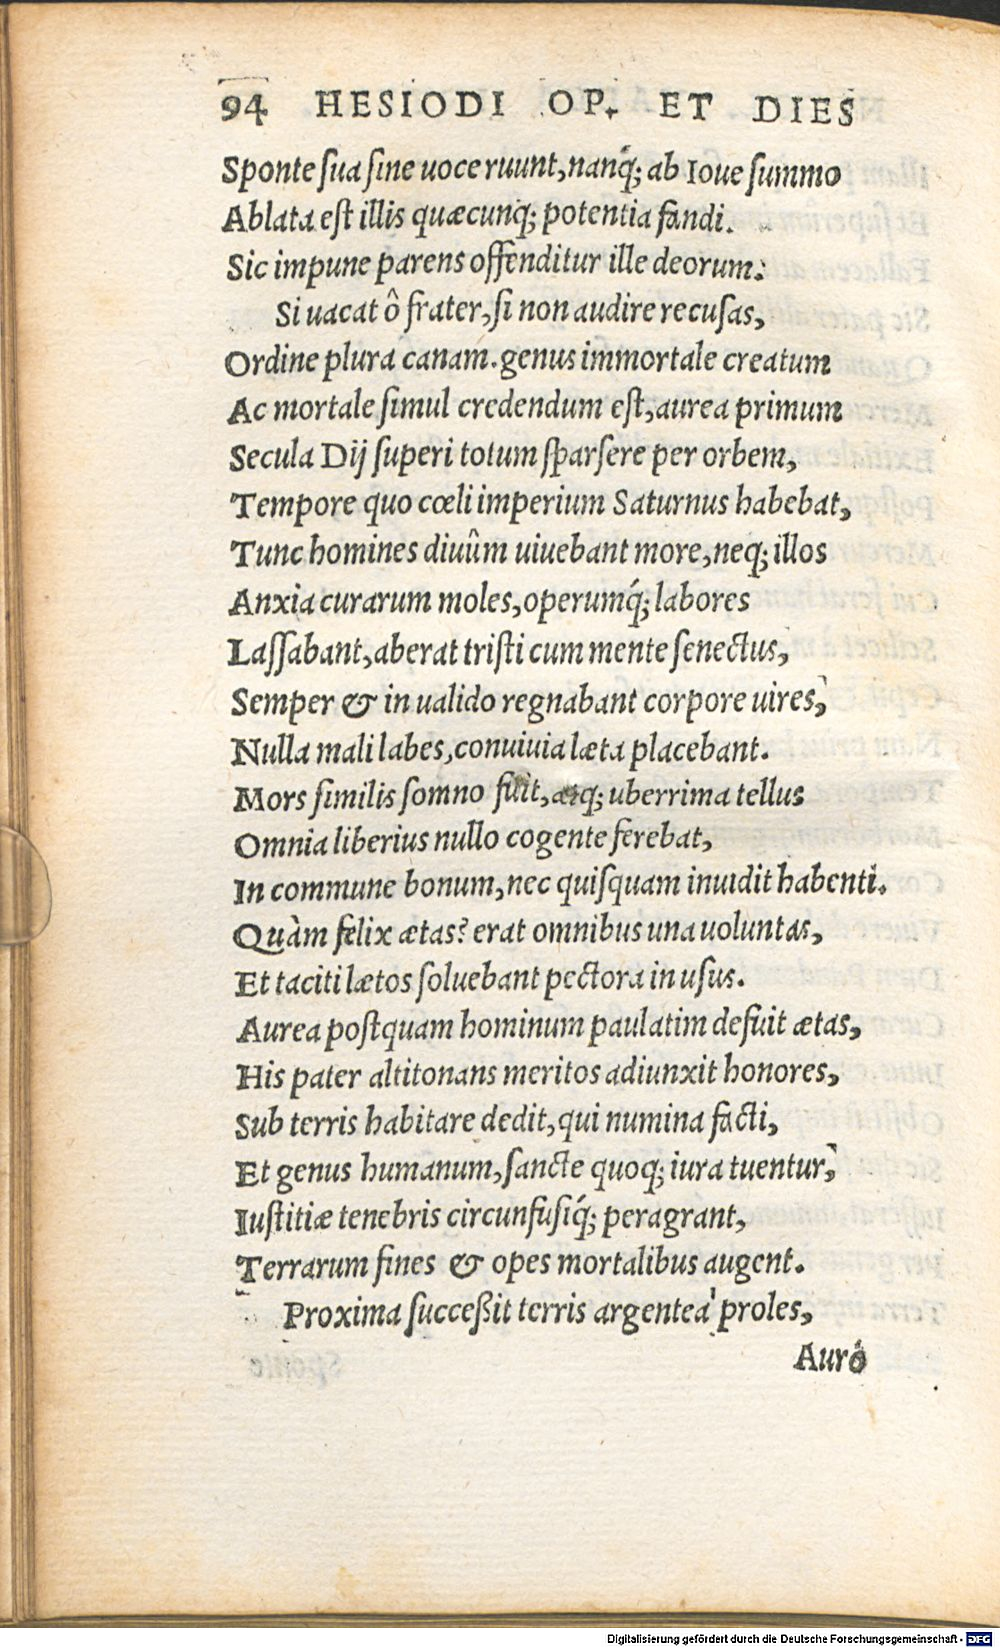 94 HESIODI OP. ET DIES
Sponte sua sine uoce ruunt, nanq́; ab Ioue summo
Ablata est illis quæcunq; potentia fandi.
Sic impune parens offenditur ille deorum:
Si uacat ô frater, si non audire recusas,
Ordine plura canam. genus immortale creatum
Ac mortale simul credendum est, aurea primum
Secula Dij superi totum sparsere per orbem,
Tempore quo cœli imperium Saturnus habebat,
Tunc homines diuûm uiuebant more, neq; illos
Anxia curarum moles, operumq́; labores
Lassabant, aberat tristi cum mente senectus,
Semper & in ualido regnabant corpore uires,
Nulla mali labes, conuiuia læta placebant.
Mors similis somno fuit, atq; uberrima tellus
Omnia liberius nullo cogente ferebat,
In commune bonum, nec quisquam inuidit habenti.
Quàm felix ætas? erat omnibus una uoluntas,
Et taciti lætos soluebant pectora in usus.
Aurea postquam hominum paulatim defuit ætas,
His pater altitonans meritos adiunxit honores,
Sub terris habitare dedit, qui numina facti,
Et genus humanum, sancte quoq; iura tuentur,
Iustitiæ tenebris circunfusiq́; peragrant,
Terrarum fines & opes mortalibus augent.
Proxima successit terris argentea proles,
Auro
Digitalisierung gefördert durch die Deutsche Forschungsgemeinschaft - DFG